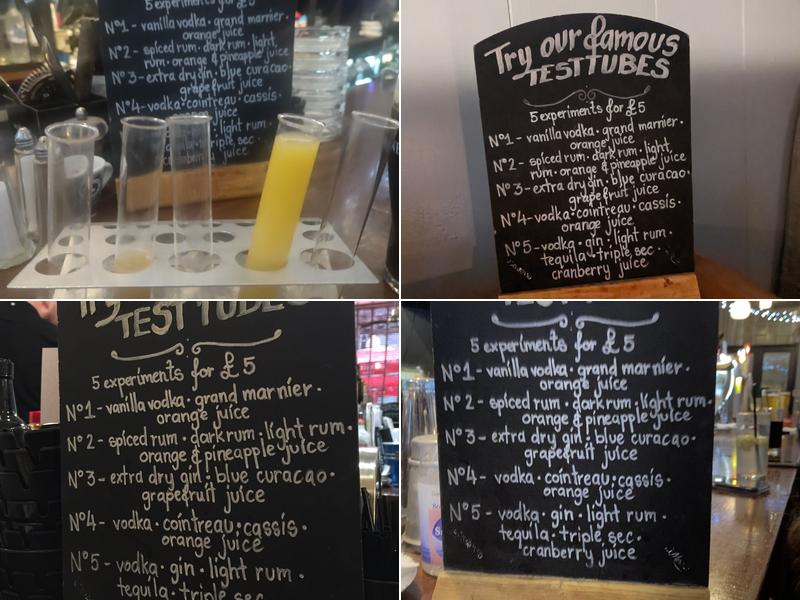 5 experiments for £5
Nº1 - vanilla vodka · grand marnier ·
orange juice
Nº2 - spiced rum · dark rum · light
rum · orange & pineapple juice
Nº3 - extra dry gin · blue curacao ·
grapefruit juice
Nº4 - vodka · cointreau · cassis ·
light rum ·
triple sec ·
Try our famous
TEST TUBES
5 experiments for £5
Nº1 - vanilla vodka · grand marnier ·
orange juice
Nº2 - spiced rum · dark rum · light
rum · orange & pineapple juice
Nº3 - extra dry gin · blue curacao ·
grapefruit juice
Nº4 - vodka · cointreau · cassis ·
orange juice
Nº5 - vodka · gin · light rum ·
tequila · triple sec ·
cranberry juice
Try
TEST TUBES
5 experiments for £5
Nº1 - vanilla vodka · grand marnier ·
orange juice
Nº2 - spiced rum · dark rum · light rum ·
orange & pineapple juice
Nº3 - extra dry gin · blue curacao ·
grapefruit juice
Nº4 - vodka · cointreau · cassis ·
orange juice
Nº5 - vodka · gin · light rum ·
tequila · triple sec ·
5 experiments for £5
Nº1 - vanilla vodka · grand marnier ·
orange juice
Nº2 - spiced rum · dark rum · light rum ·
orange & pineapple juice
Nº3 - extra dry gin · blue curacao ·
grapefruit juice
Nº4 - vodka · cointreau · cassis ·
orange juice
Nº5 - vodka · gin · light rum ·
tequila · triple sec ·
cranberry juice